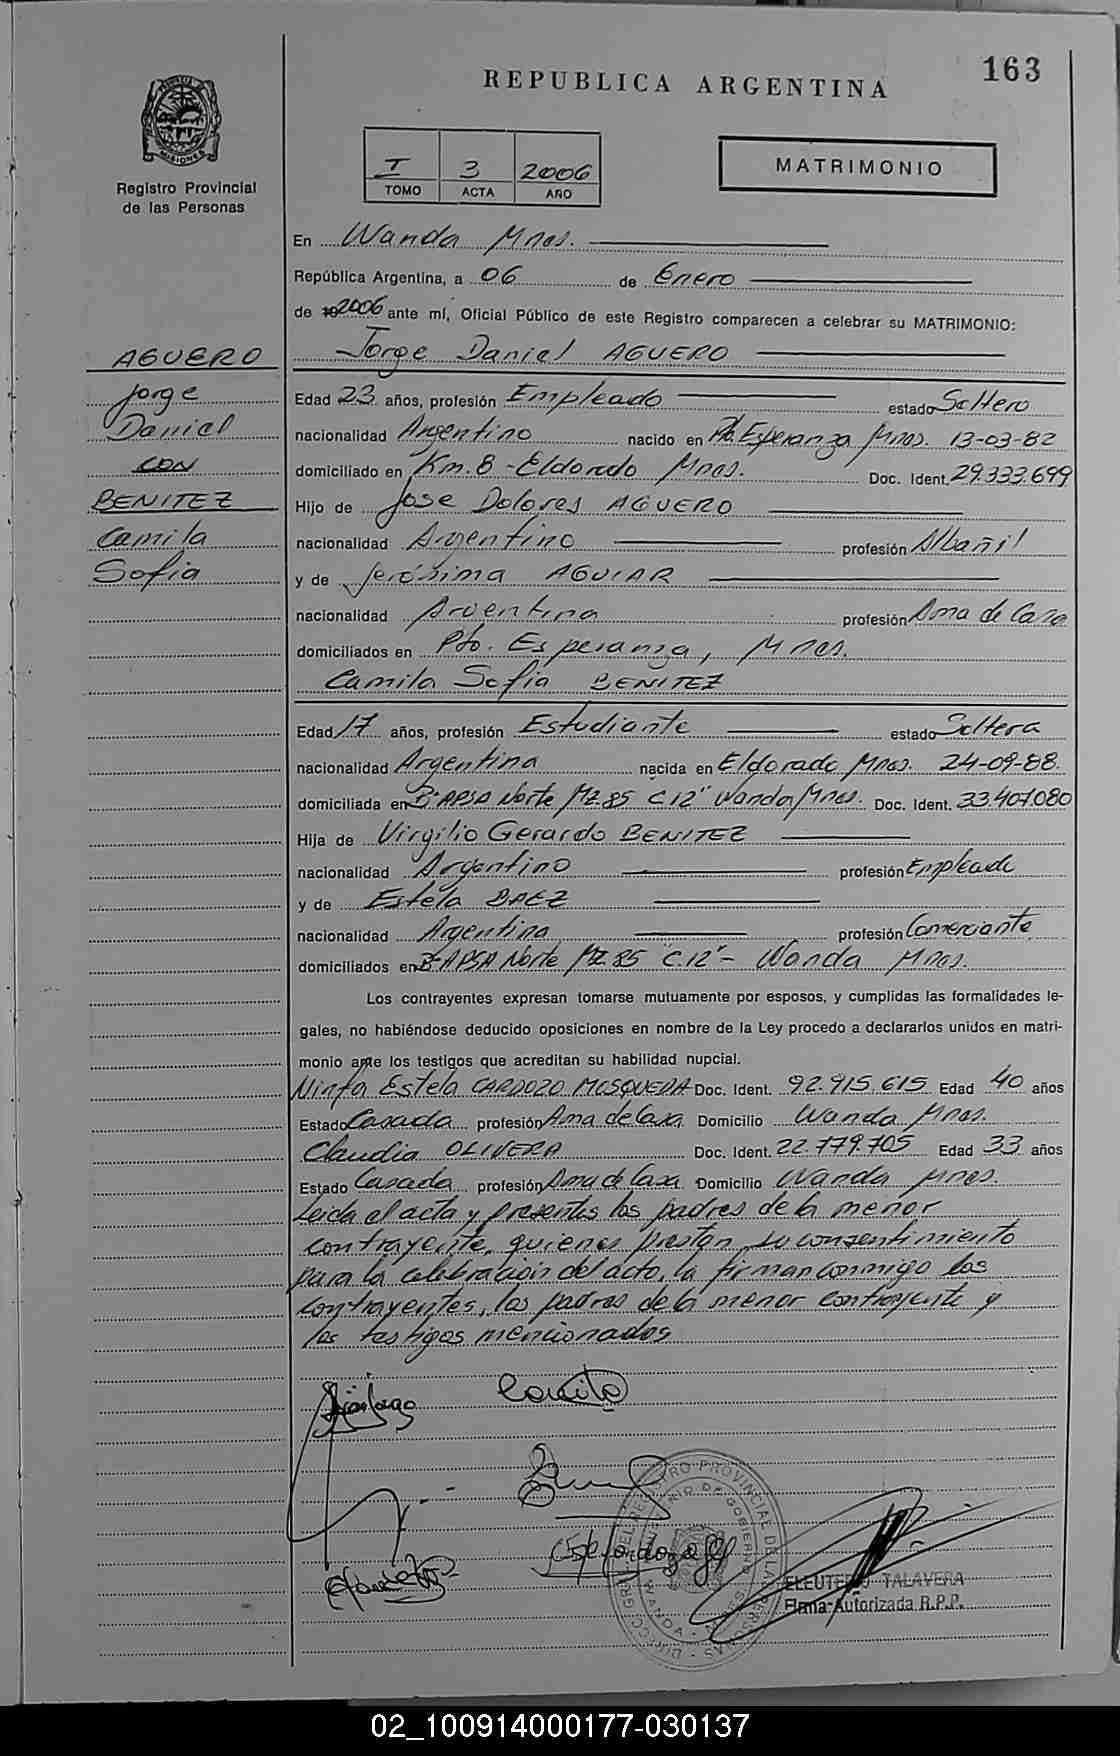 163
REPUBLICA ARGENTINA
MISIONES
Registro Provincial
de las Personas
I 3 2006
TOMO ACTA AÑO
MATRIMONIO
En Wanda Mnes.
República Argentina, a 06 de Enero
de 2006 ante mí, Oficial Público de este Registro comparecen a celebrar su MATRIMONIO:
Jorge Daniel AGUERO
AGUERO
Jorge
Daniel
CON
BENITEZ
Camila
Sofia
Edad 23 años, profesión Empleado estado Soltero
nacionalidad Argentino nacido en Pto. Esperanza Mnes. 13-03-82
domiciliado en Km. 8 - Eldorado Mnes. Doc. Ident. 29.333.699
Hijo de Jose Dolores AGUERO
nacionalidad Argentino profesión Albañil
y de Jerónima AGUIAR
nacionalidad Argentina profesión Ama de Casa
domiciliados en Pto. Esperanza, Mnes.
Camila Sofia BENITEZ
Edad 17 años, profesión Estudiante estado Soltera
nacionalidad Argentina nacida en Eldorado Mnes. 24-09-88
domiciliada en B° APSA Norte Mz. 85 C 12" Wanda Mnes. Doc. Ident. 33.407.080
Hija de Virgilio Gerardo BENITEZ
nacionalidad Argentino profesión Empleado
y de Estela BAEZ
nacionalidad Argentina profesión Comerciante
domiciliados en B° APSA Norte Mz. 85 "C. 12" - Wanda Mnes.
Los contrayentes expresan tomarse mutuamente por esposos, y cumplidas las formalidades le-
gales, no habiéndose deducido oposiciones en nombre de la Ley procedo a declararlos unidos en matri-
monio ante los testigos que acreditan su habilidad nupcial.
Ninfa Estela CARDOZO MOSQUEDA Doc. Ident. 92.915.615 Edad 40 años
Estado Casada profesión Ama de Casa Domicilio Wanda Mnes.
Claudia OLIVERA Doc. Ident. 22.779.705 Edad 33 años
Estado Casada profesión Ama de Casa Domicilio Wanda Mnes.
Leida el acta y presentes los padres de la menor
contrayente, quienes prestan su consentimiento
para la celebración del acto, la firman conmigo los
contrayentes, los padres de la menor contrayente y
los testigos mencionados
Camila
ELEUTERIO TALAVERA
Firma Autorizada R.P.P.
02_100914000177-030137